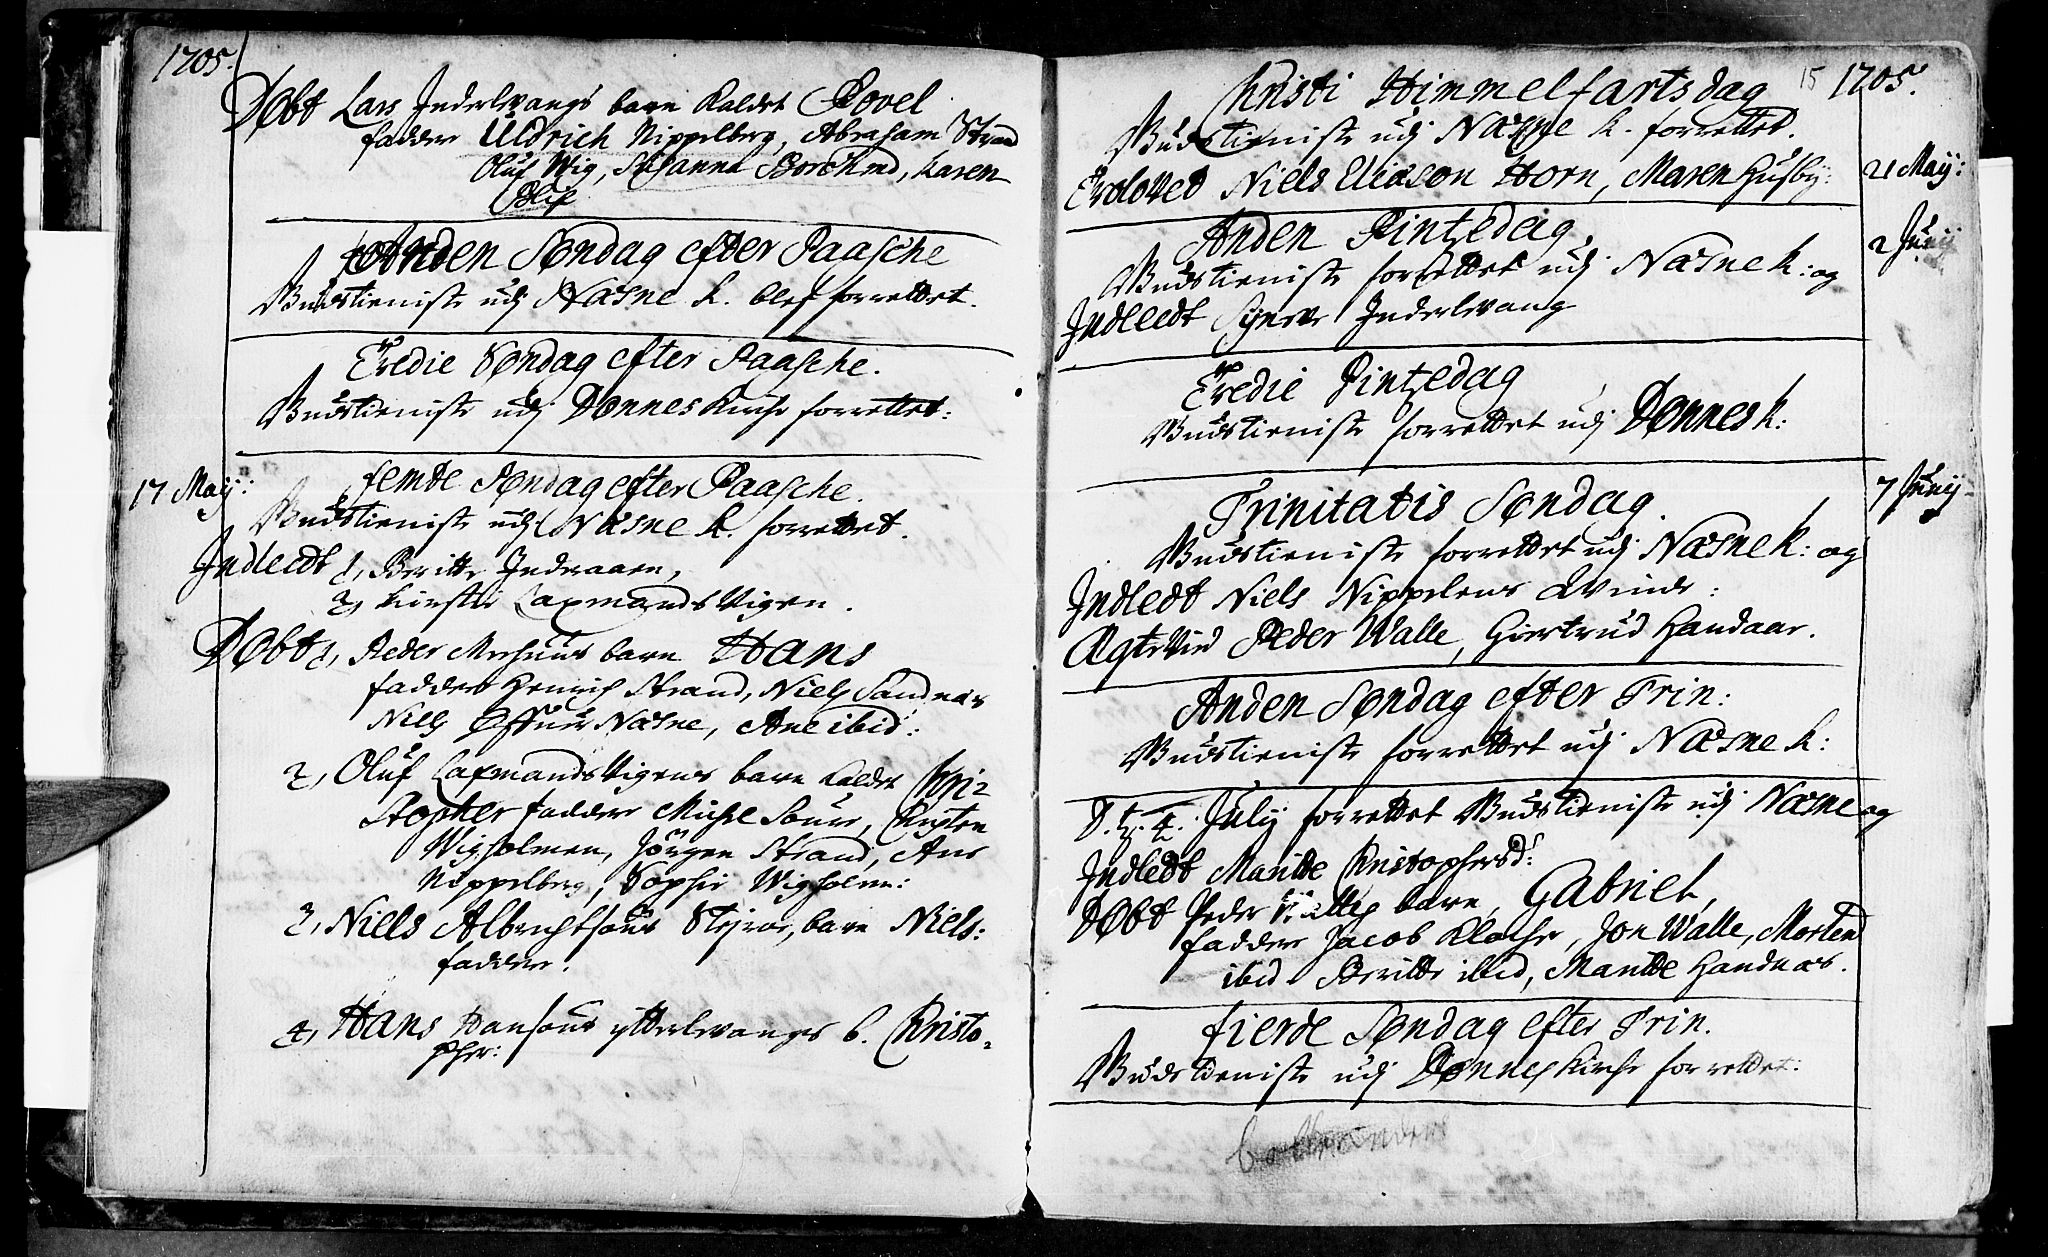 1705.
Døbt Lars Inderlvangs barn kaldet Povel
fadder Uldrich Nippelberg, Abraham Strand
Oluf Wig, Susanna Borchmd, Karen
Anden Søndag efter Paasche
Gudstieniste udj Næsne k. blef forrettet.
Tredie Søndag efter Paasche.
Gudstieniste udj Dønnes Kirche forrettet:
17 Maij:
femte Søndag efter Paasche.
Gudstieniste udj Næsne k. forrettet.
Indleedt 1, Beritte Inderaaen,
2, Kirsti Laxmands Vigen.
Døbt 1, Peder barn Hans
fadder Henrich Strand, Niels Sandnæs
Niels Næsne, Ane ibid:
2, Oluf Laxmands Vigens barn kaldet Chri=
stopher fadder Michel Sour, Christen
Wigholmen, Jörgen Strand, Ane
Nippelberg, Sophie Wigholm:
3, Niels Albrechtsøns barn Niels:
fadder.
4, Hans Hansøns ytterlvangs b. Christo=
pher:
15 1705.
Christi Himmelfartsdag
Gudstieniste udj Næsne k. forrettet.
21 Maij:
Troloved Niels Eliæson Horn, Maren Husby:
2 Junij
Anden Pintzedag
Gudstieniste forrettet udj Næsne k: og
Indleedt Synve Inderlvang
Tredie Pintzedag
Gudstieniste forrettet udj Dønnes k:
7 Junij
Trinitatis Søndag.
Gudstieniste forrettet udj Næsne k: og
Indledt Niels Nippelens Qvinde:
Ægteviet Peder Walle, Giertrud Handaar.
Anden Søndag efter Trin:
Gudstieniste forrettet udj Næsne k:
D. 4. July forrettet Gudstieniste udj Næsne og
Indledt Maritte Christophersd:
Døbt Peder Walles barn, Gabriel,
fadder Jacob Klochr, Jon Walle, Morten
ibid Beritte ibid, Maritte Handnæs.
fierde Søndag efter Trin.
Gudstieniste udj Dønnes Kirche forrettet: